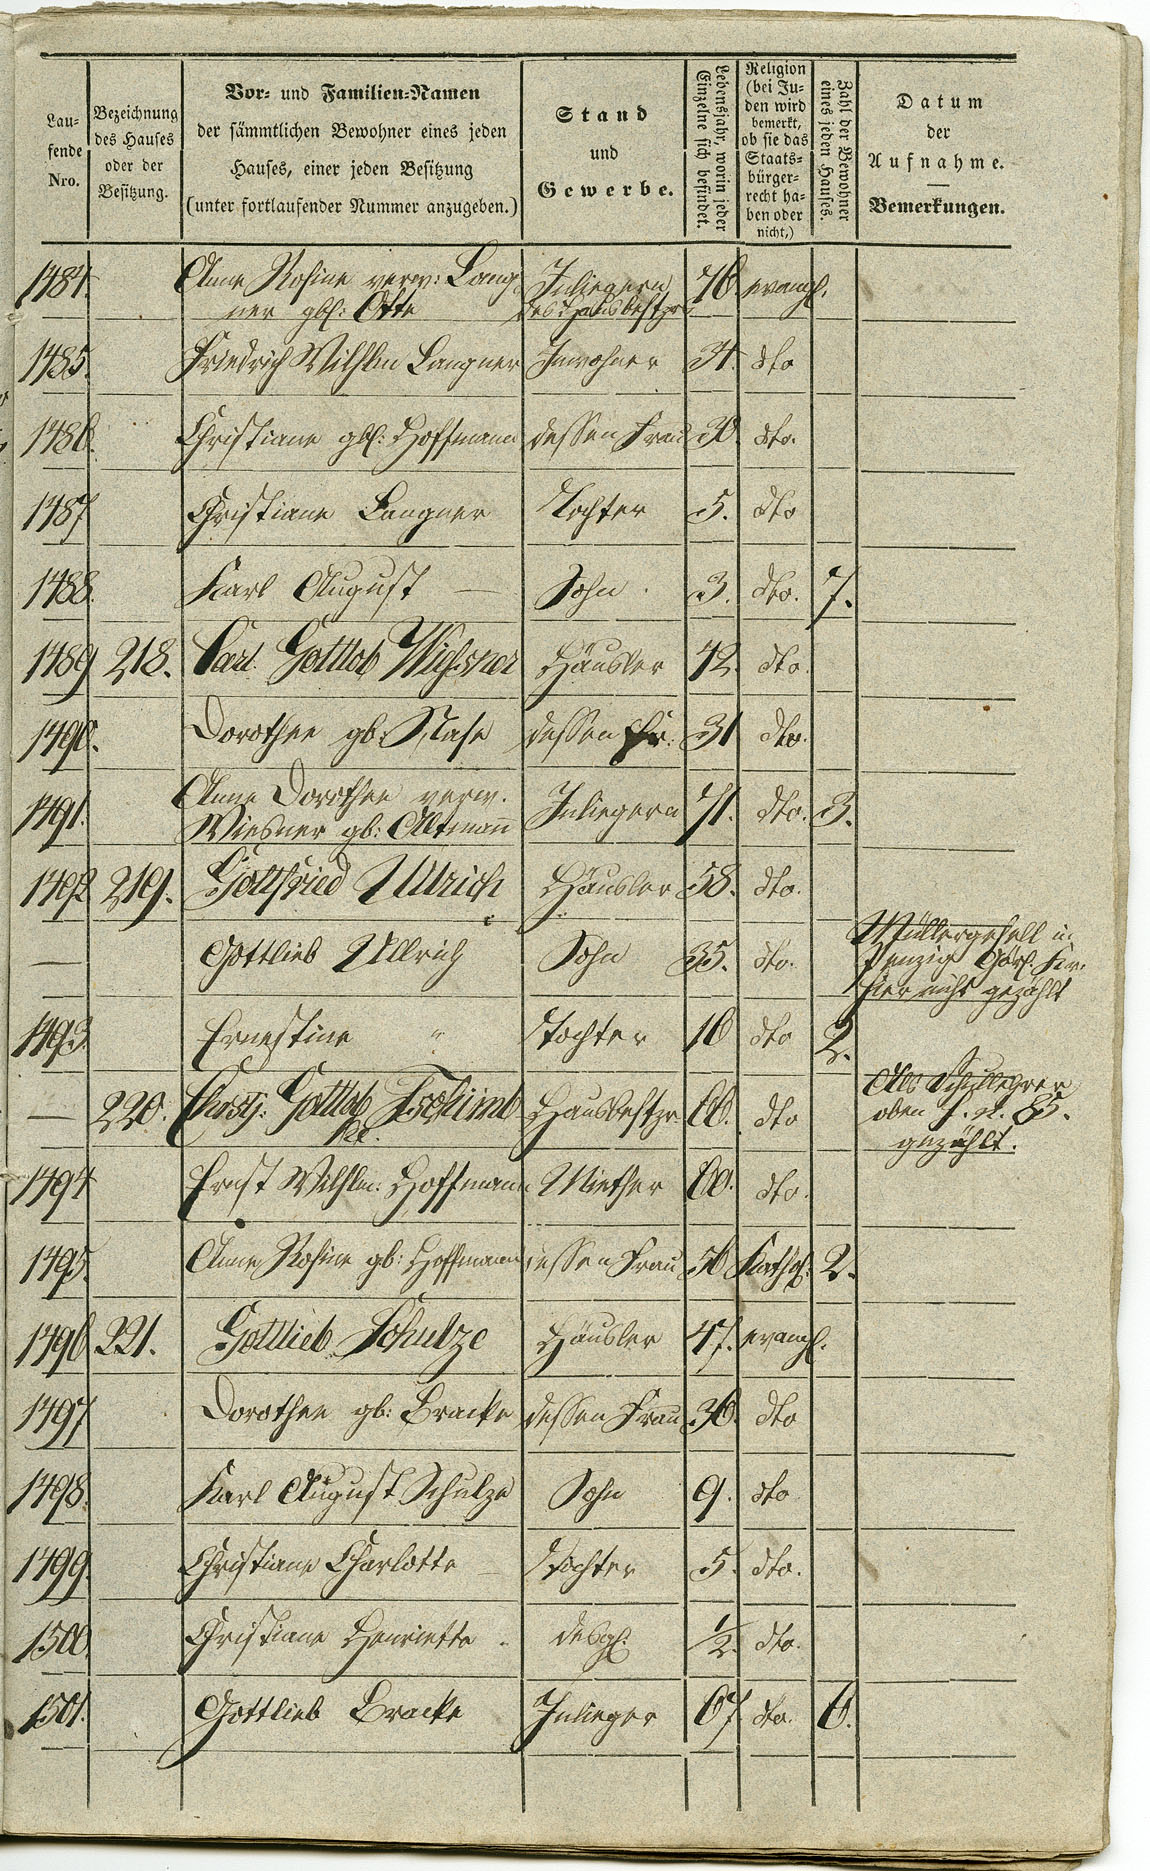 Lau-
fende
Nro.
Bezeichnung
des Hauses
oder der
Besitzung.
Vor- und Familien-Namen
der sämmtlichen Bewohner eines jeden
Hauses, einer jeden Besitzung
(unter fortlaufender Nummer anzugeben.)
Stand
und
Gewerbe.
Lebensjahr, worin jeder
Einzelne sich befindet.
Religion
(bei Ju-
den wird
bemerkt,
ob sie das
Staats-
bürger-
recht ha-
ben oder
nicht,)
Zahl der Bewohner
eines jeden Hauses.
Datum
der
Aufnahme.
—
Bemerkungen.
1484. Anne Rosine verw: Lang- Inliegerin 76. evangl.
ner gbl: Otte des Hausbesitzers
1485. Friedrich Wilhlm Langner Inwohner 34. dto
1486. Christiane gbl: Hoffmann dessen Frau 30. dto.
1487 Christiane Langner Tochter 5. dto
1488. Karl August — Sohn 3. dto. 7.
1489 218. Carl Gottlob Häusler 42. dto.
1490. Dorothee gb: Nase dessen Fr. 31 dto.
1491. Anne Dorothee verw.
Wiesner gb: Altmann Inliegerin 71. dto. 3.
1492 219. Gottfried Ullrich Häusler 58. dto.
— Gottlieb Ullrich Sohn 35. dto. Müllergesell in
Penzig
hier nicht gezählt
1493. Ernestine " Tochter 16 dto 2.
— 220. Gottlob Hausbesitzr. 66. dto Als Schullehrer
oben 85.
gezählt.
1494 Ernst Wilhlm: Hoffmann Miether 60. dto.
1495. Anne Rosine gb: Hoffmann dessen Frau 56 Kathol. 2.
1496 221. Gottlieb Schulze Häusler 47. evangl.
1497 Dorothee gb: Bracke dessen Frau 36. dto
1498. Karl August Schulze Sohn 9. dto
1499. Christiane Charlotte — Tochter 5. dto.
1500. Christiane Henriette - desgl. 1/2. dto.
1501. Gottlieb Bracke Inlieger 67 dto. 6.